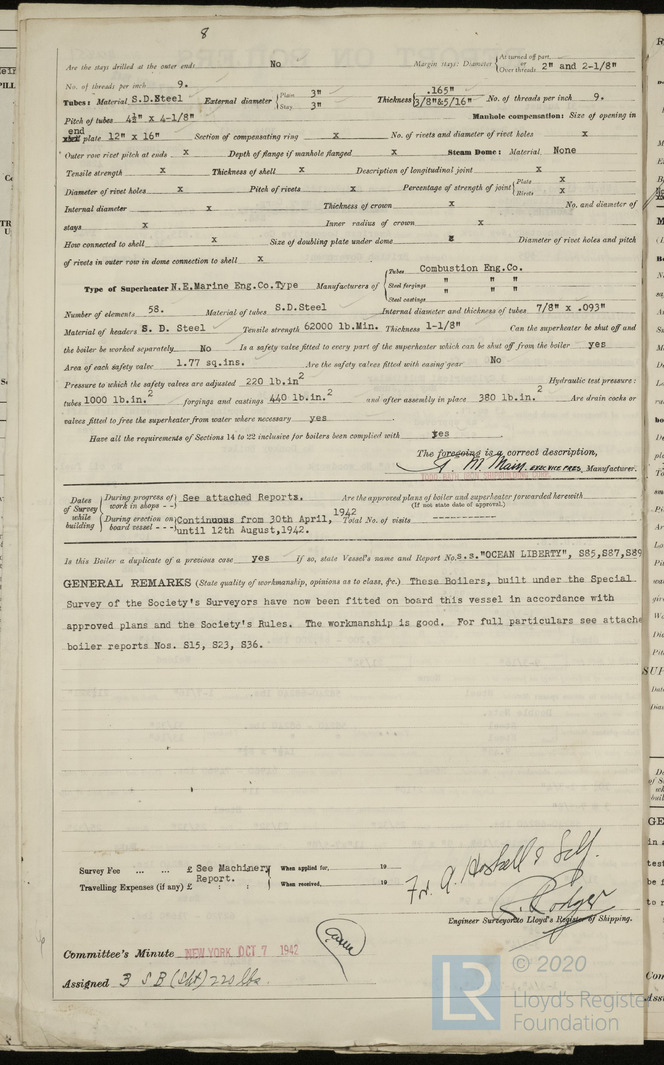 8
Are the stays drilled at the outer ends No Margin stays: Diameter { At turned off part, or Over threads 2" and 2-1/8"
No. of threads per inch 9.
Tubes: Material S.D.Steel External diameter { Plain 3" Stay 3" Thickness { .165" 3/8"&5/16" No. of threads per inch 9.
Pitch of tubes 4½" x 4-1/8" Manhole compensation: Size of opening in
end plate 12" x 16" Section of compensating ring x No. of rivets and diameter of rivet holes x
Outer row rivet pitch at ends x Depth of flange if manhole flanged x Steam Dome: Material None
Tensile strength x Thickness of shell x Description of longitudinal joint x
Diameter of rivet holes x Pitch of rivets x Percentage of strength of joint { Plate x Rivets x
Internal diameter x Thickness of crown x No. and diameter of
stays x Inner radius of crown x
How connected to shell x Size of doubling plate under dome x Diameter of rivet holes and pitch
of rivets in outer row in dome connection to shell x
Type of Superheater N.E.Marine Eng.Co.Type Manufacturers of { Tubes Combustion Eng.Co. Steel forgings " " " Steel castings " " "
Number of elements 58. Material of tubes S.D.Steel Internal diameter and thickness of tubes 7/8" x .093"
Material of headers S. D. Steel Tensile strength 62000 lb.Min. Thickness 1-1/8" Can the superheater be shut off and
the boiler be worked separately No Is a safety valve fitted to every part of the superheater which can be shut off from the boiler yes
Area of each safety valve 1.77 sq.ins. Are the safety valves fitted with easing gear No
Pressure to which the safety valves are adjusted 220 lb.in2 Hydraulic test pressure:
tubes 1000 lb.in.2 forgings and castings 440 lb.in.2 and after assembly in place 380 lb.in.2 Are drain cocks or
valves fitted to free the superheater from water where necessary yes
Have all the requirements of Sections 14 to 22 inclusive for boilers been complied with yes
The foregoing is a correct description,
M. Main EXEC VICE PRES. Manufacturer.
Dates of Survey while building { During progress of work in shops - - } See attached Reports. Are the approved plans of boiler and superheater forwarded herewith
(If not state date of approval.)
During erection on board vessel - - - } Continuous from 30th April, 1942 Total No. of visits -------------
until 12th August,1942.
Is this Boiler a duplicate of a previous case yes If so, state Vessel's name and Report No. s.s."OCEAN LIBERTY", S85,S87,S89
GENERAL REMARKS (State quality of workmanship, opinions as to class, &c.) These Boilers, built under the Special
Survey of the Society's Surveyors have now been fitted on board this vessel in accordance with
approved plans and the Society's Rules. The workmanship is good. For full particulars see attache
boiler reports Nos. S15, S23, S36.
Survey Fee ... ... £ See Machinery Report. When applied for, 19
Travelling Expenses (if any) £ : : When received, 19
Fr. A. Haskell & Self.
Engineer Surveyor to Lloyd's Register of Shipping.
Committee's Minute NEW YORK OCT 7 1942
Assigned 3 S B (Spt) 220 lbs.
LR © 2020
Lloyd's Registe
Foundation